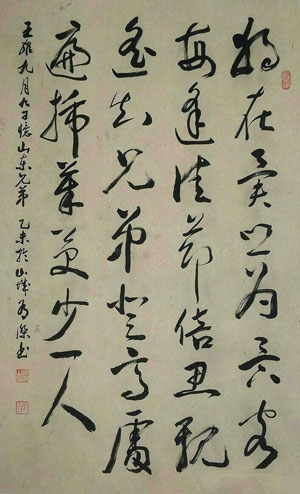 独在异乡为异客
每逢佳节倍思亲
遥知兄弟登高處
遍插茱萸少一人
王维九月九日憶山东兄弟 乙未於山城 书